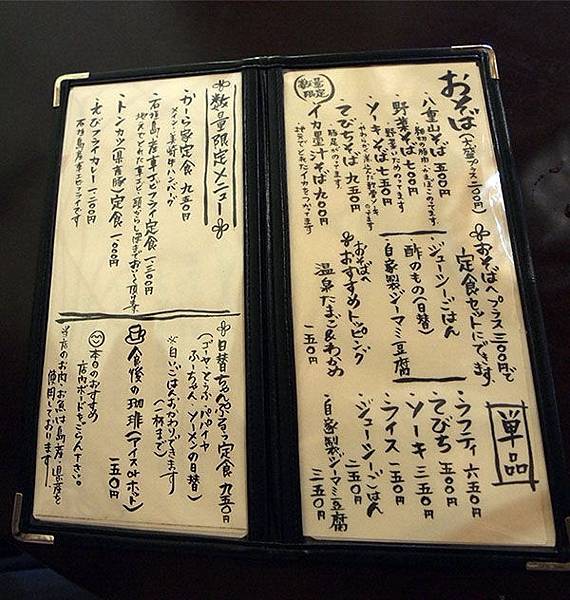 おそば(大盛プラス二〇〇円)
・八重山そば 五〇〇円
・野菜そば 七〇〇円
野菜をいためのってます
・ソーキそば 七五〇円
数量限定
てびちそば 九五〇円
豚足がのってます
イカ墨汁そば 九〇〇円
おそばへプラス三〇〇円で
定食セットにできます。
・ジューシーごはん
・酢のもの(日替)
・自家製ジーマミ豆腐
おそばへ
おすすめトッピング
温泉たまご&わかめ
一五〇円
単品
・ラフティ 六五〇円
・てびち 五〇〇円
・ソーキ 三五〇円
・ライス 一五〇円
・ジューシーごはん
二五〇円
・自家製ジーマミ豆腐
三五〇円
数量限定メニュー
・かーら家定食 九五〇円
メイン=美崎牛ハンバーグ
・石垣島産車エビフライ定食 一、三〇〇円
・トンカツ(県産豚)定食 一、一〇〇円
・えびフライカレー 一、二〇〇円
石垣島産車エビフライです
日替ちゃんぷるぅ定食 九五〇円
(ゴーヤ・とうふ・パパイヤ
ふーちゃん・ソーメンの日替)
※白いごはんおかわりできます
(一杯まで)
食後の珈琲(アイスorホット)
一五〇円
本日のおすすめ
店内ボードをごらん下さい。
当店のお肉・お魚は島産・県産を
使用しております